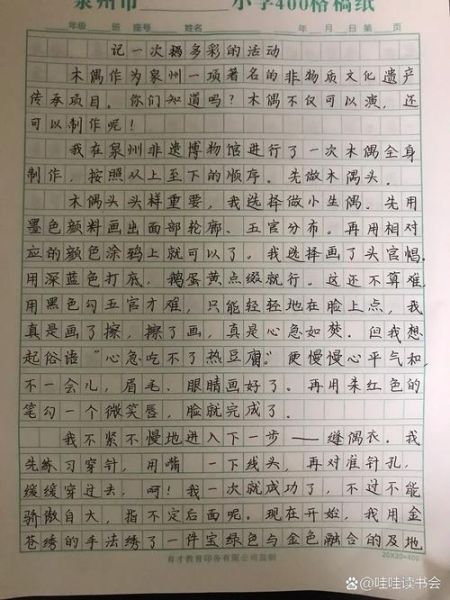 泉州市 小学400格稿纸
年级 班 座号 姓名 年 月 日 第 页
记一次耦多彩的活动
木偶作为泉州一项著名的非物质文化遗产
传承项目。你们知道吗？木偶不仅可以演，还
可以制作呢！
我在泉州非遗博物馆进行了一次木偶全身
制作，按照从上至下的顺序。先做木偶头。
木偶头头样重要，我选择做小生偶。先用
墨色颜料画出面部轮廓、五官分布。再用相对
应的颜色涂鸦上就可以了。我选择画了头官帽，
用深蓝色打底，鹅蛋黄点缀就行。这还不算难，
用黑色勾五官才难，只能轻轻地在脸上点，我
真是画了擦，擦了画，真是心急如焚。但我想
起俗语“心急吃不了热豆腐”便慢慢心平气和，
不一会儿，眉毛、眼睛画好了。再用朱红色的
笔勾一个微笑唇，脸就完成了。
我不紧不慢地进入下一步——缝偶衣。我
先练习穿针，用嘴 一下线头，再对准针孔，
缓缓穿过去，呵！我一次就成功了，不过不能
骄傲自大，指不定后面呢。现在开始，我用金
苍绣的手法绣了一件宝绿色与金色融合的及地
育才教育印务有限公司监制
20×20=400
@哇哇读书会